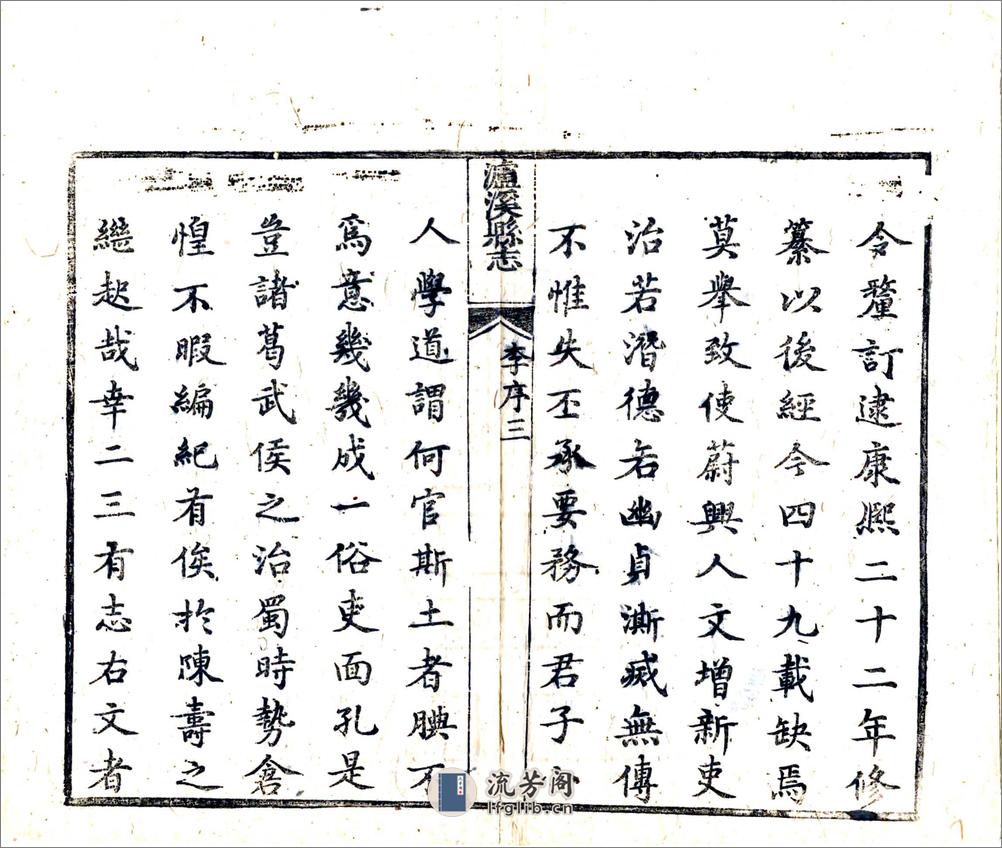 令釐訂逮康熙二十二年修
纂以後經今四十九載缺焉
莫舉致使蔚興人文增新吏
治若潛德若幽貞澌滅無傳
不惟失丕承要務而君子小
瀘溪縣志
李序三
人學道謂何官斯土者腆不
爲意幾幾成一俗吏面孔是
豈諸葛武侯之治蜀時勢倉
惶不暇編紀有俟扵陳壽之
繼起哉幸二三有志右文者
流芳阁
lfglib.cn